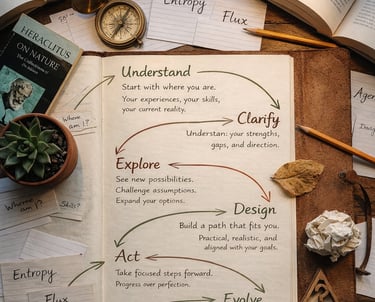 Entropy
Flux
HERACLITUS
ON NATURE
Understand
Start with where you are.
Your experiences, your skills,
your current reality.
Where
am I?
Clarify
Understan: your strengths,
gaps, and direction.
Explore
See new possibilities.
Challenge assumptions.
Expand your options.
Skills?
Design
Build a path that fits you.
Practical, realistic, and
aligned with your goals.
Act
Take focused steps forward.
Progress over perfection.
Entropy
Flux
Evolve